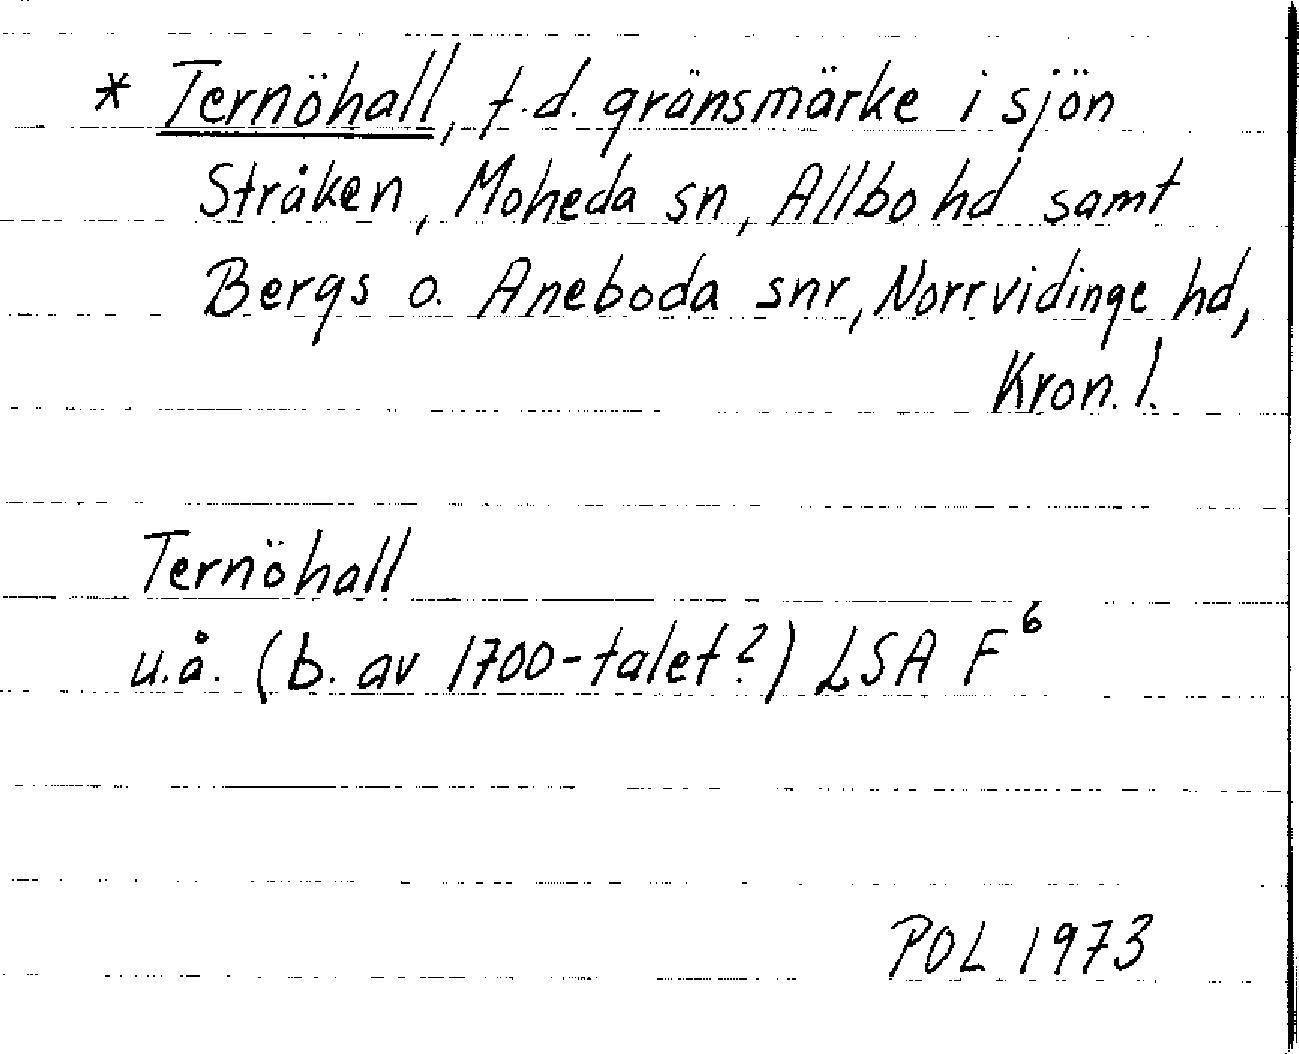 * Ternöhall, f.d. gränsmärke i sjön
Stråken, Moheda sn, Allbo hd samt
Bergs o. Aneboda snr, Norrvidinge hd,
Kron. l.
Ternöhall
u.å. (b. av 1700-talet?) LSA F⁶
POL 1973